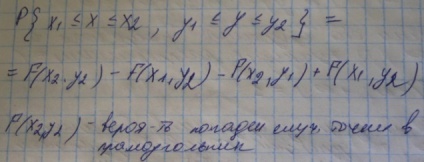 P{ x₁ ≤ x ≤ x₂ , y₁ ≤ y ≤ y₂ } =
= F(x₂,y₂) - F(x₁,y₂) - P(x₂,y₁) + F(x₁,y₂)
P(x₂y₂) - вероя-ть попадан случ. точки в
прямоугольник